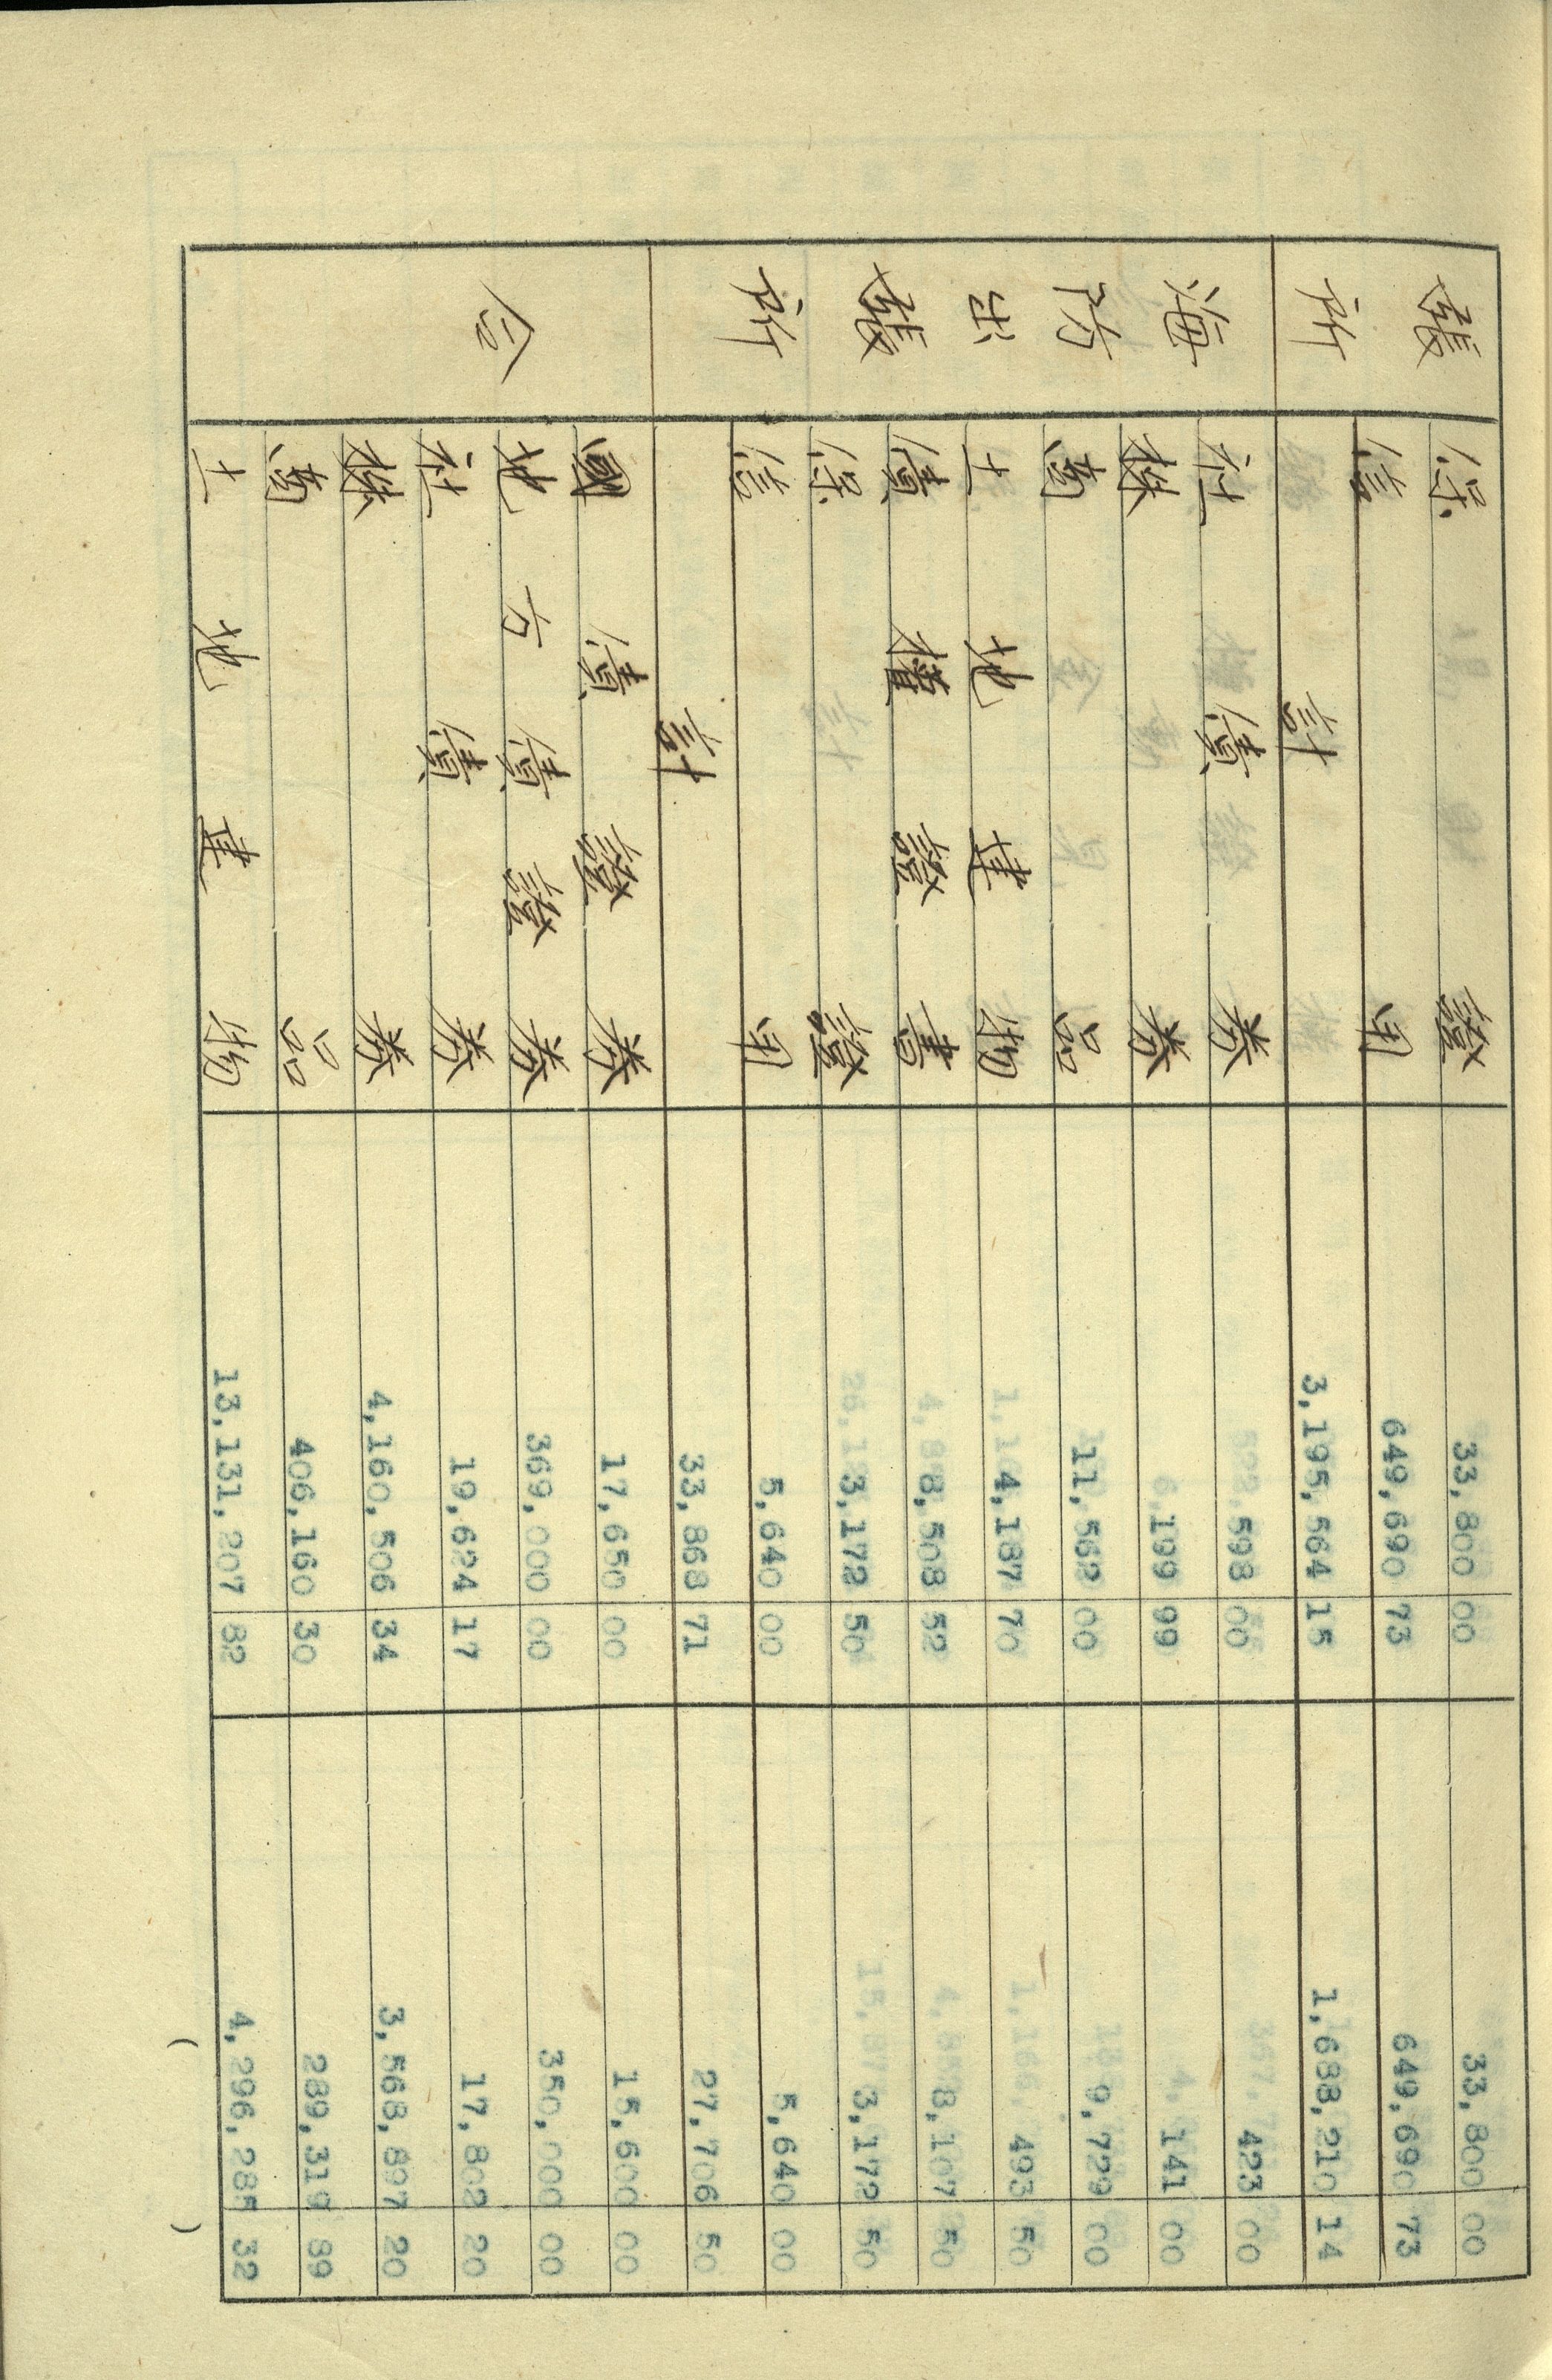 張所
保證 33,800 00 33,800 00
信用 649,690 73 649,690 73
計 3,195,564 15 1,688,210 14
海防出張所
社債券 598 00 423 00
株券 199 99 141 00
商品 11,562 00 9,729 00
土地建物 4,187 70 493 50
債權證書 8,508 52 8,107 50
保證 3,172 50 3,172 50
信用 5,640 00 5,640 00
計 33,868 71 27,706 50
合
國債證券 17,650 00 15,600 00
地方債證券 369,000 00 350,000 00
社債券 19,624 17 17,802 20
株券 4,160,506 34 3,568,897 20
商品 406,160 30 289,319 89
土地建物 13,131,207 82 4,296,285 32
( )